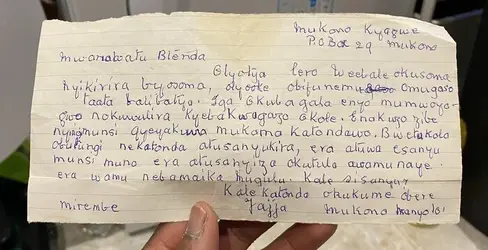 Mukono Kyaggwe
P.O Box 29 Mukono
Mwanawatu Blenda
Olyotya leero Weebale okusoma
Nyikirira byosoma, olyoke obifunemu omugaso
taata balibatya. Iga okubagala enyo mumwoyo
gwo nokuwulira kyebakwagaza okole. Enakuzo zibe
nyingi munsi gyeyakuwa mukama Katondawo. Bwetukola
obulungi ne katonda atusanyukira, era atuwa esanyu
munsi muno era atusanyiza okutula awamu naye
era wamu nebamaika mugulu. Kale sisanyu,
Kale Katonda okukume obere
mirembe Jajja Mukono